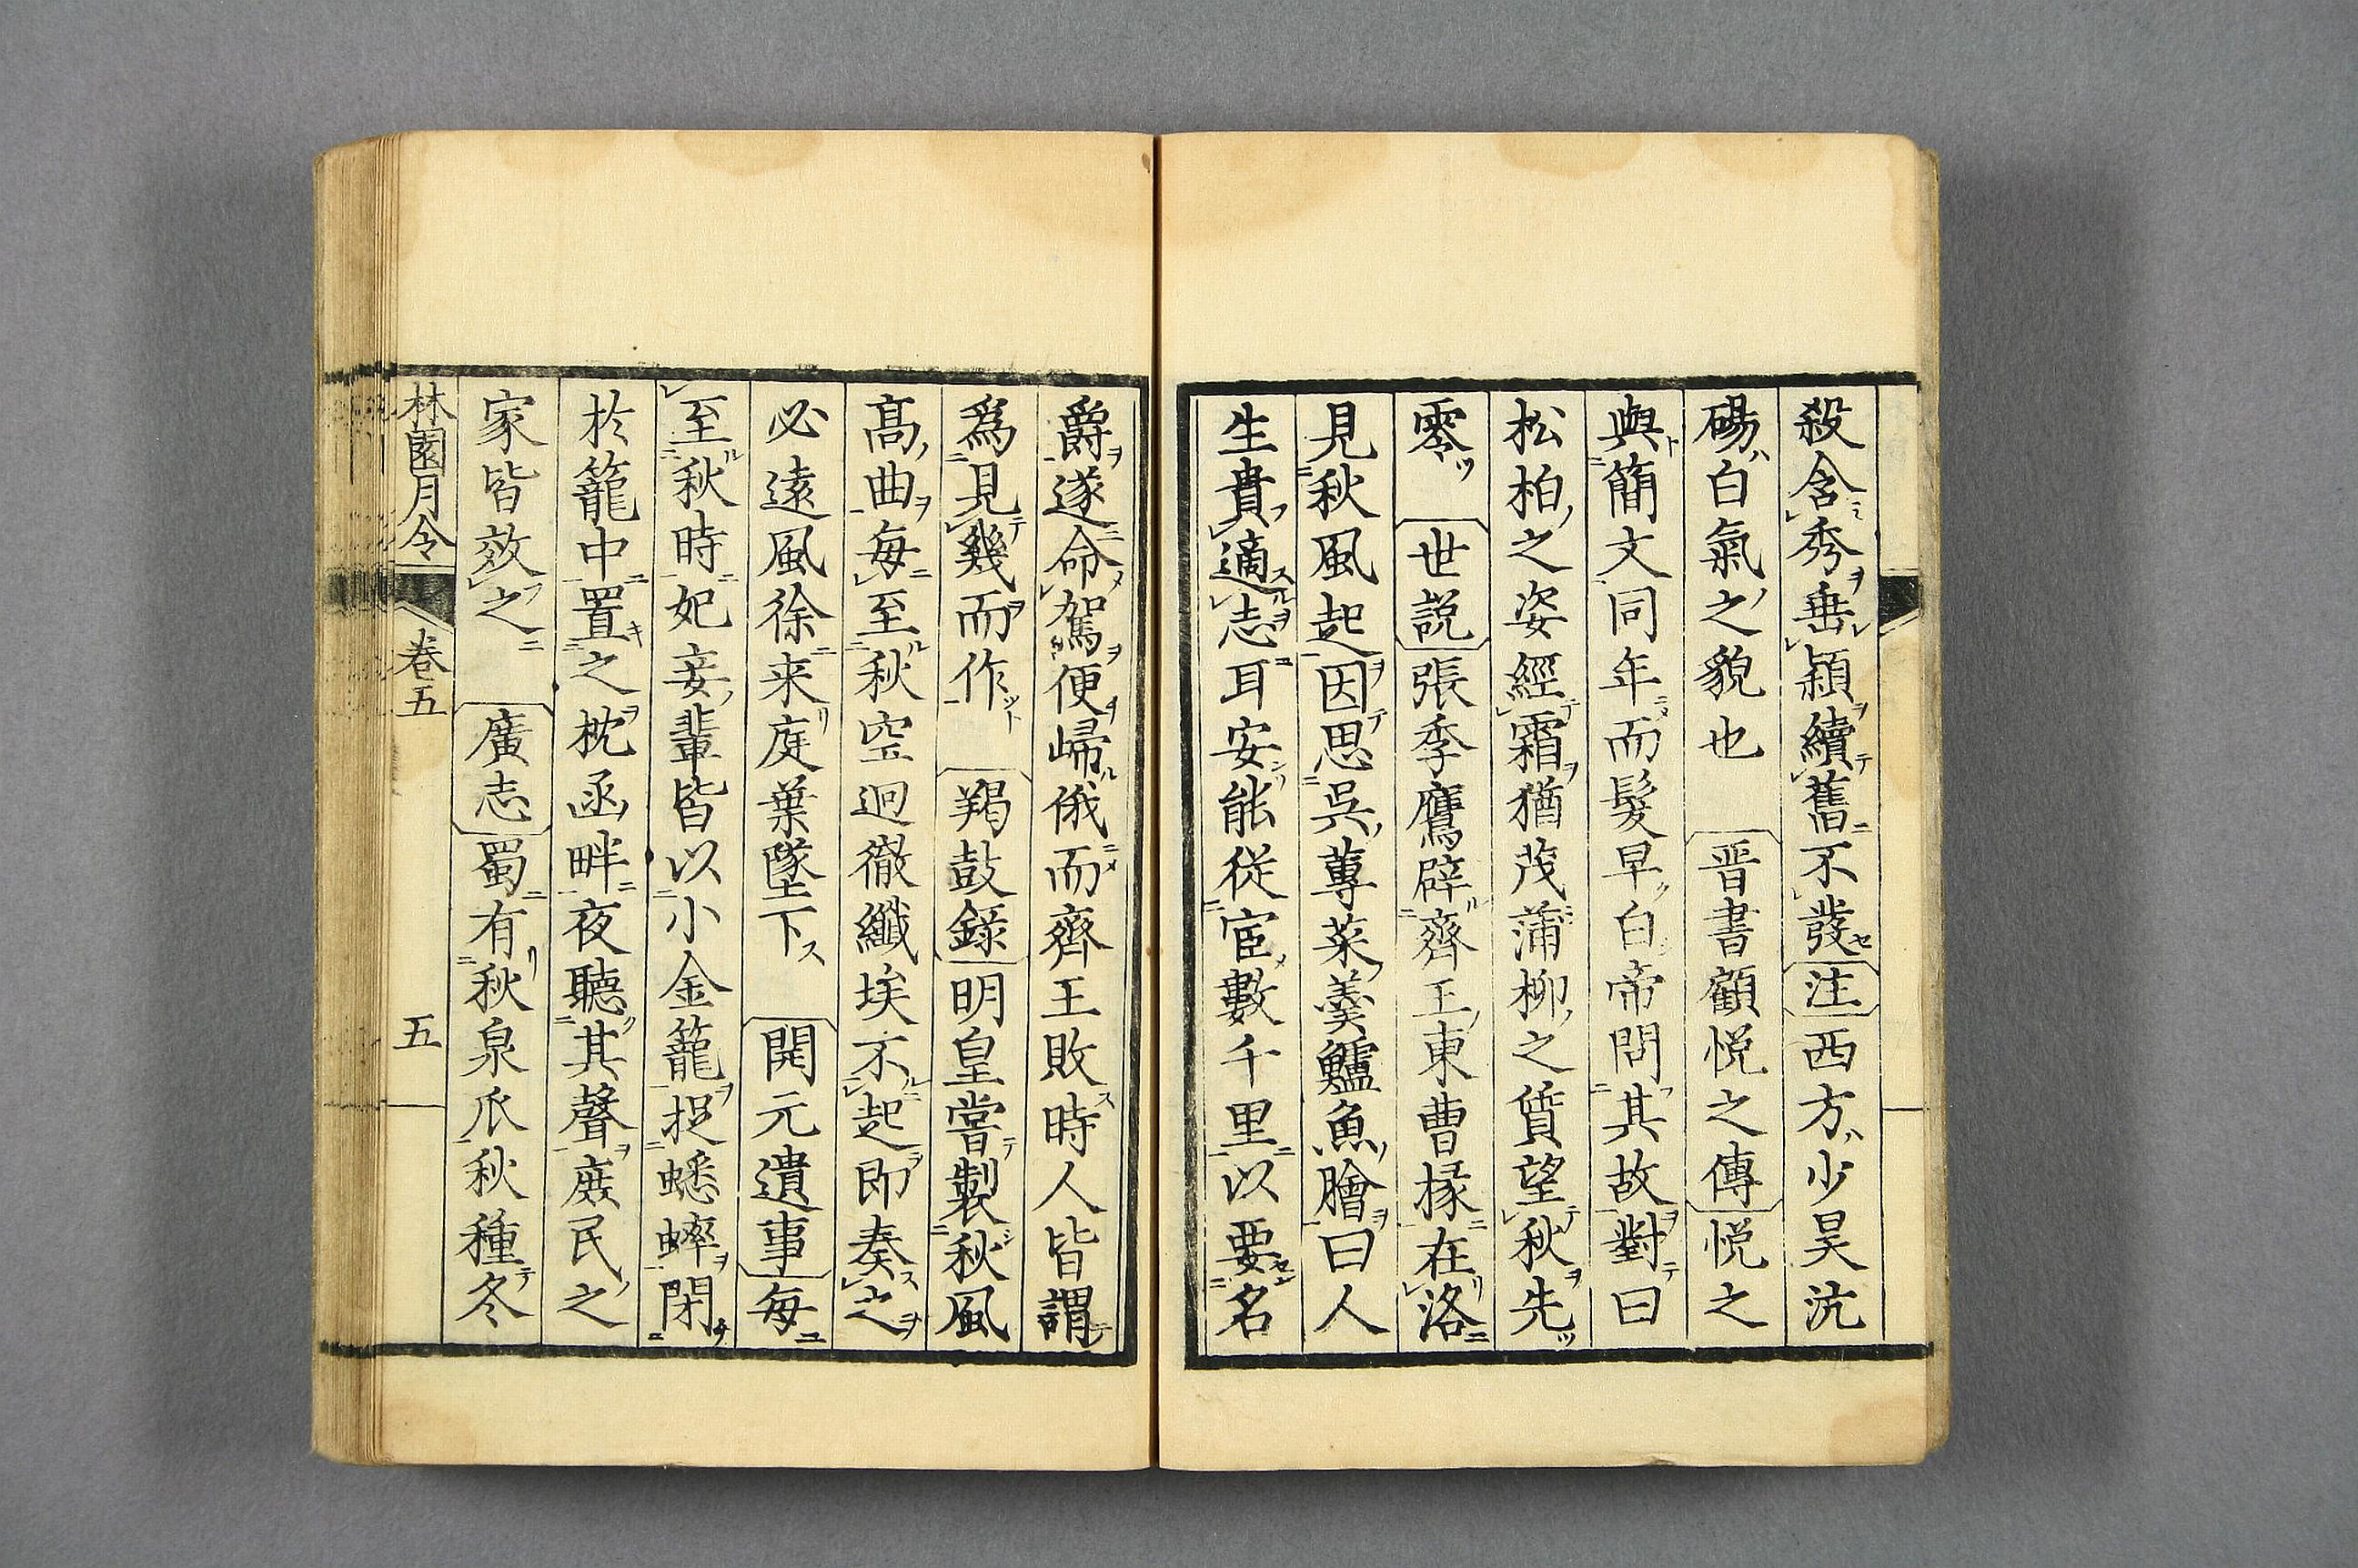 殺含秀垂穎續舊不發注西方少昊沆
碭白氣之貌也　晋書顧悅之傳悅之
與簡文同年而髮早白帝問其故對曰
松柏之姿經霜猶茂蒲柳之質望秋先
零　世説張季鷹辟齊王東曹掾在洛
見秋風起因思呉蓴菜羹鱸魚膾曰人
生貴適志耳安能從宦數千里以要名
爵遂命駕便歸俄而齊王敗時人皆謂
爲見幾而作　羯鼓錄明皇嘗製秋風
髙曲每至秋空迥徹纖埃不起即奏之
必遠風徐来庭葉墜下　開元遺事每
至秋時妃妾輩皆以小金籠捉蟋蟀閉
於籠中置之枕函畔夜聽其聲庶民之
家皆效之　廣志蜀有秋泉爪秋種冬
林園月令　卷五　五